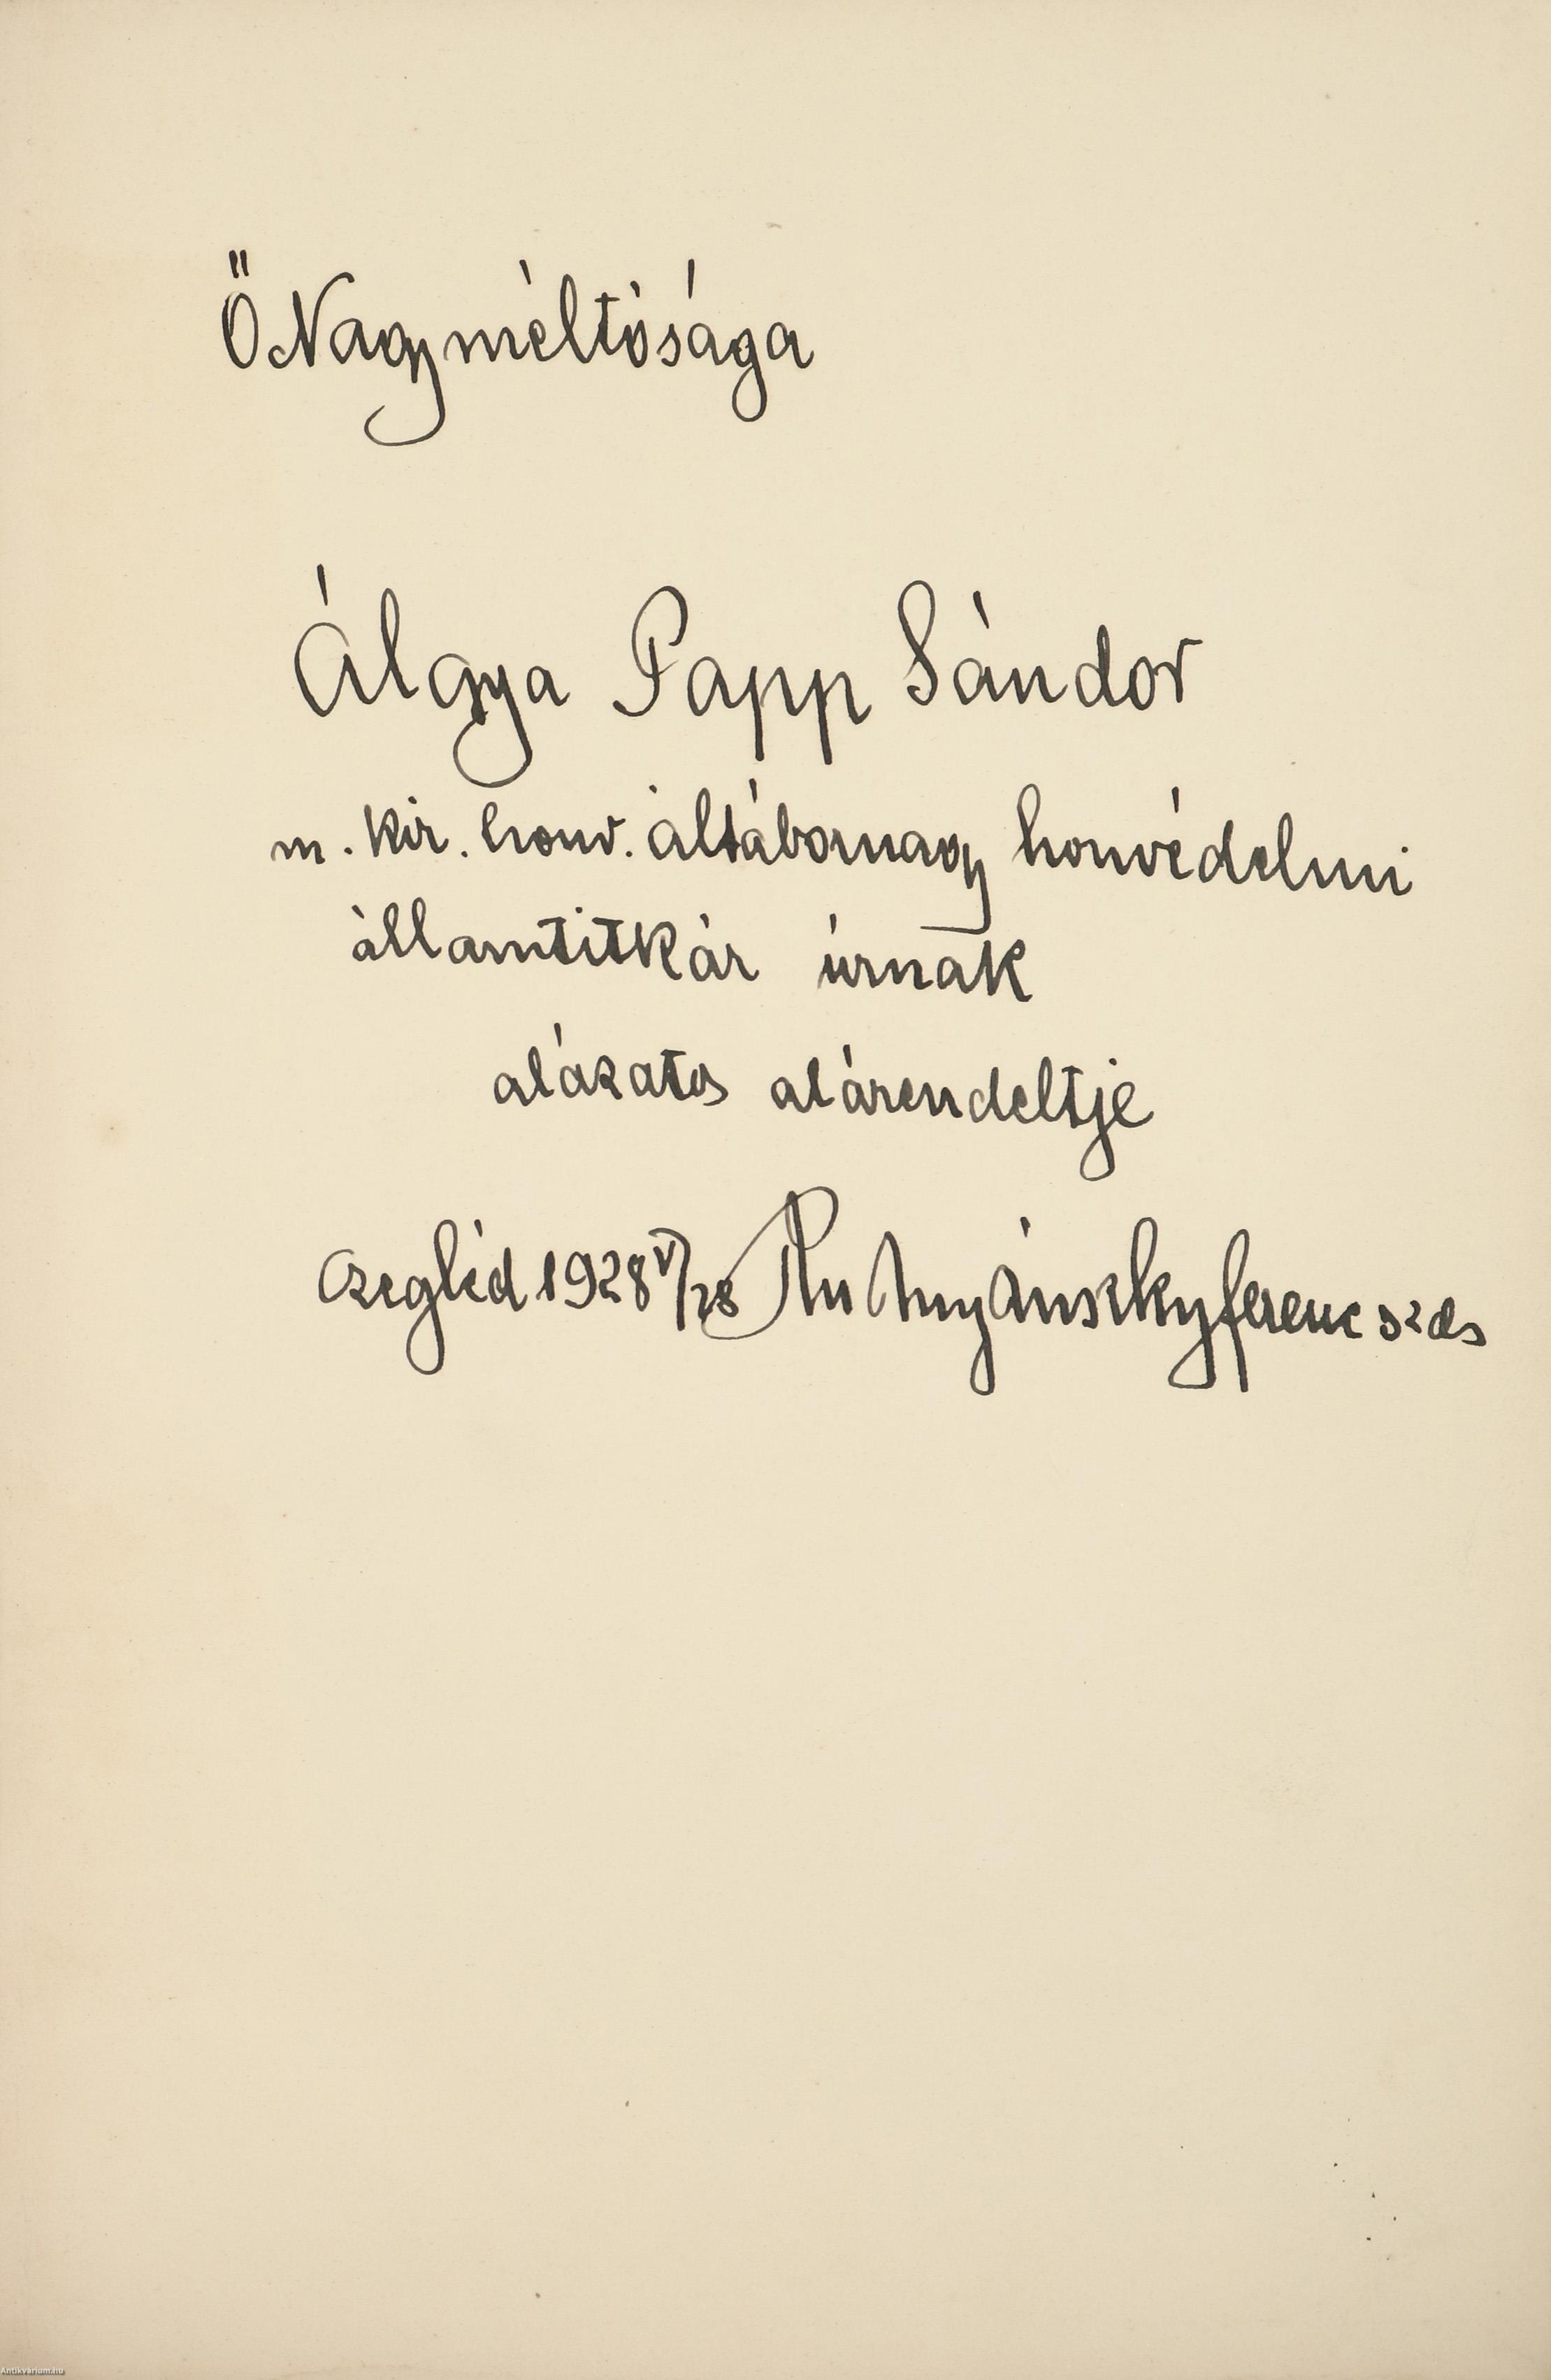 Ő Nagyméltósága
Álgya Papp Sándor
m. kir. honv. altábornagy honvédelmi
államtitkár úrnak
alázatos alárendeltje
Czegléd 1928 V/28 Rudnyánszky ferenc szds
Antikvárium.hu